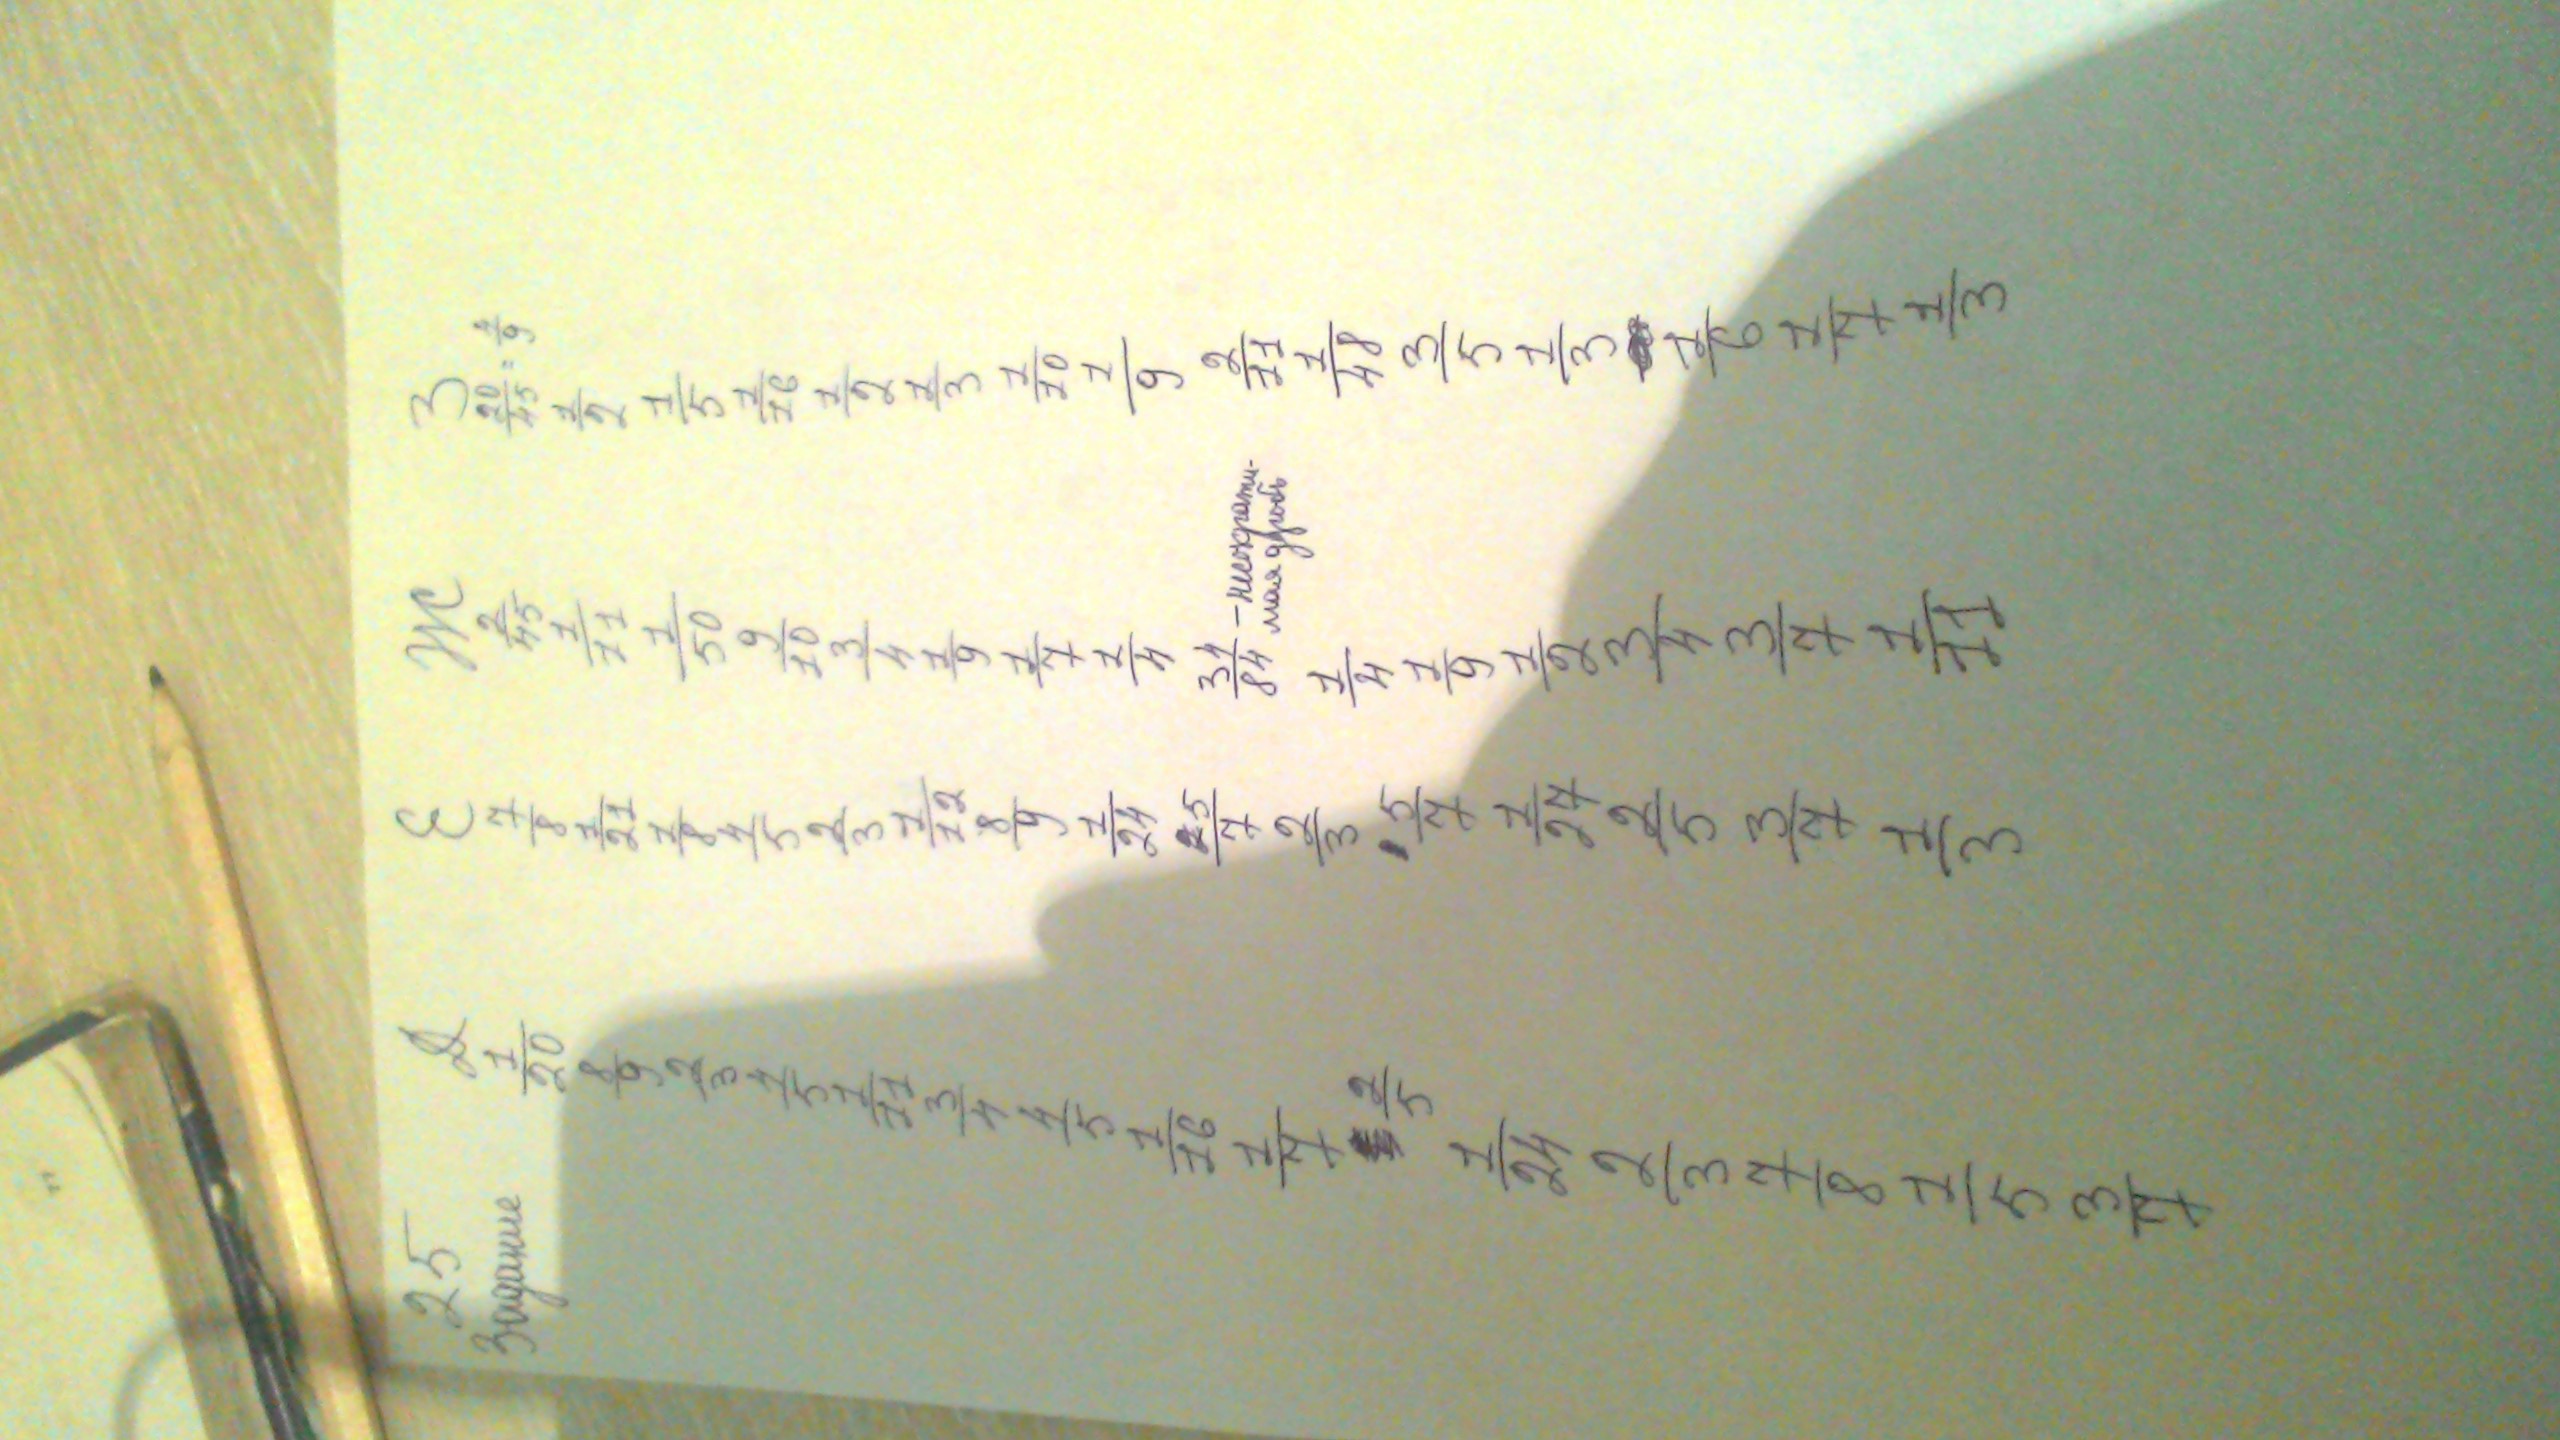 25
Задание
Д
1/20
8/9
2/3
4/5
1/11
3/4
4/5
1/16
1/7
2/5
1/24
2/3
7/8
1/5
3/7
Е
7/8
1/21
1/8
4/5
2/3
1/12
8/9
1/24
5/7
2/3
5/7
1/27
2/5
3/7
1/3
Ж
2/45
1/11
1/50
9/10
3/4
1/9
1/7
1/4
34/84 - несократи-
мая дробь
1/4
1/9
1/2
3/4
3/7
1/11
З
20/45 = 4/9
1/2
1/5
1/16
1/2
1/3
1/10
1/9
2/11
1/48
3/5
1/3
1/6
1/7
1/3